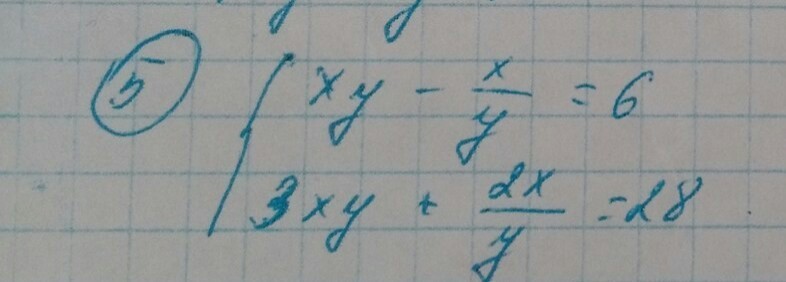 5 { xy - x/y = 6
3xy + 2x/y = 28